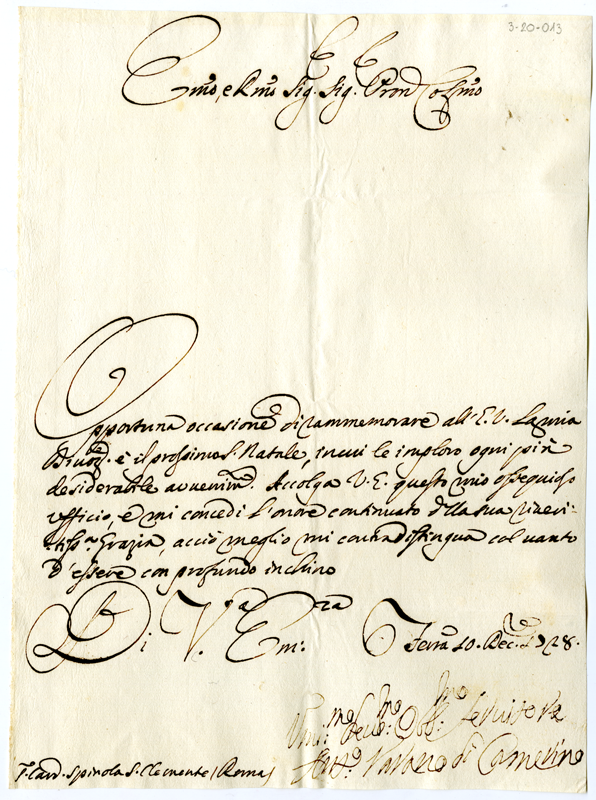 3-20-013
Emo, e Rmo Sig. Sig. Pron Colmo
Opportuna occasione di rammemorare all'E.V. la mia
Divoz. è il prossimo S. Natale, in cui le imploro ogni più
desiderabile avvenimto. Accolga V.E. questo mio ossequioso
ufficio, e mi concedi l'onore continuato della sua riveri-
tissa. Grazia, acciò meglio mi contradistingua col vanto
d'essere con profondo inchino
Di V.ra Emza. Ferra 10. Dece. 1728.
Umo: Devmo: Obbmo: Servitore
Varano di Camerino
Card. Spinola S. Clemente (Roma)